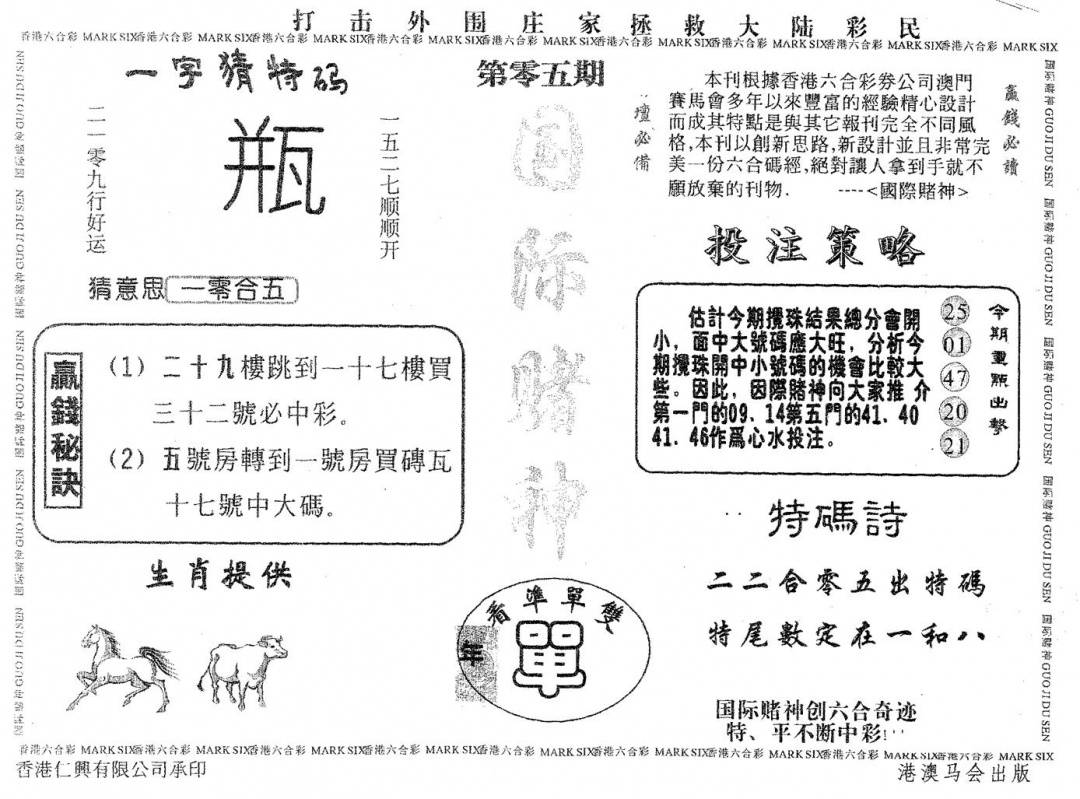 打击外围庄家拯救大陆彩民
香港六合彩 MARK SIX香港六合彩 MARK SIX香港六合彩 MARK SIX香港六合彩 MARK SIX香港六合彩 MARK SIX香港六合彩 MARK SIX香港六合彩 MARK SIX香港六合彩 MARK SIX香港六合彩 MARK SIX
一字猜特码
二一零九行好运
瓶
一五二七顺顺开
猜意思 一零合五
贏錢秘訣
(1) 二十九樓跳到一十七樓買
三十二號必中彩。
(2) 五號房轉到一號房買磚瓦
十七號中大碼。
生肖提供
第零五期
国际赌神
看準單雙
年
單
壇必備
本刊根據香港六合彩券公司澳門
賽馬會多年以來豐富的經驗精心設計
而成其特點是與其它報刊完全不同風
格,本刊以創新思路,新設計並且非常完
美一份六合碼經,絕對讓人拿到手就不
願放棄的刊物. ----<國際賭神>
贏錢必讀
投注策略
估計今期攪珠結果總分會開
小，面中大號碼應大旺，分析今
期攪珠開中小號碼的機會比較大
些。因此，因際賭神向大家推 介
第一門的09、14第五門的41、40
41、46作爲心水投注。
25
01
47
20
21
今期重點出擊
特碼詩
二二合零五出特碼
特尾數定在一和八
国际赌神创六合奇迹
特、平不断中彩!
国际赌神 GUO JI DU SEN 国际赌神 GUO JI DU SEN 国际赌神 GUO JI DU SEN 国际赌神 GUO JI DU SEN 国际赌神 GUO JI DU SEN
香港六合彩 MARK SIX香港六合彩 MARK SIX香港六合彩 MARK SIX香港六合彩 MARK SIX香港六合彩 MARK SIX香港六合彩 MARK SIX香港六合彩 MARK SIX香港六合彩 MARK SIX香港六合彩 MARK SIX
香港仁興有限公司承印
港澳马会出版